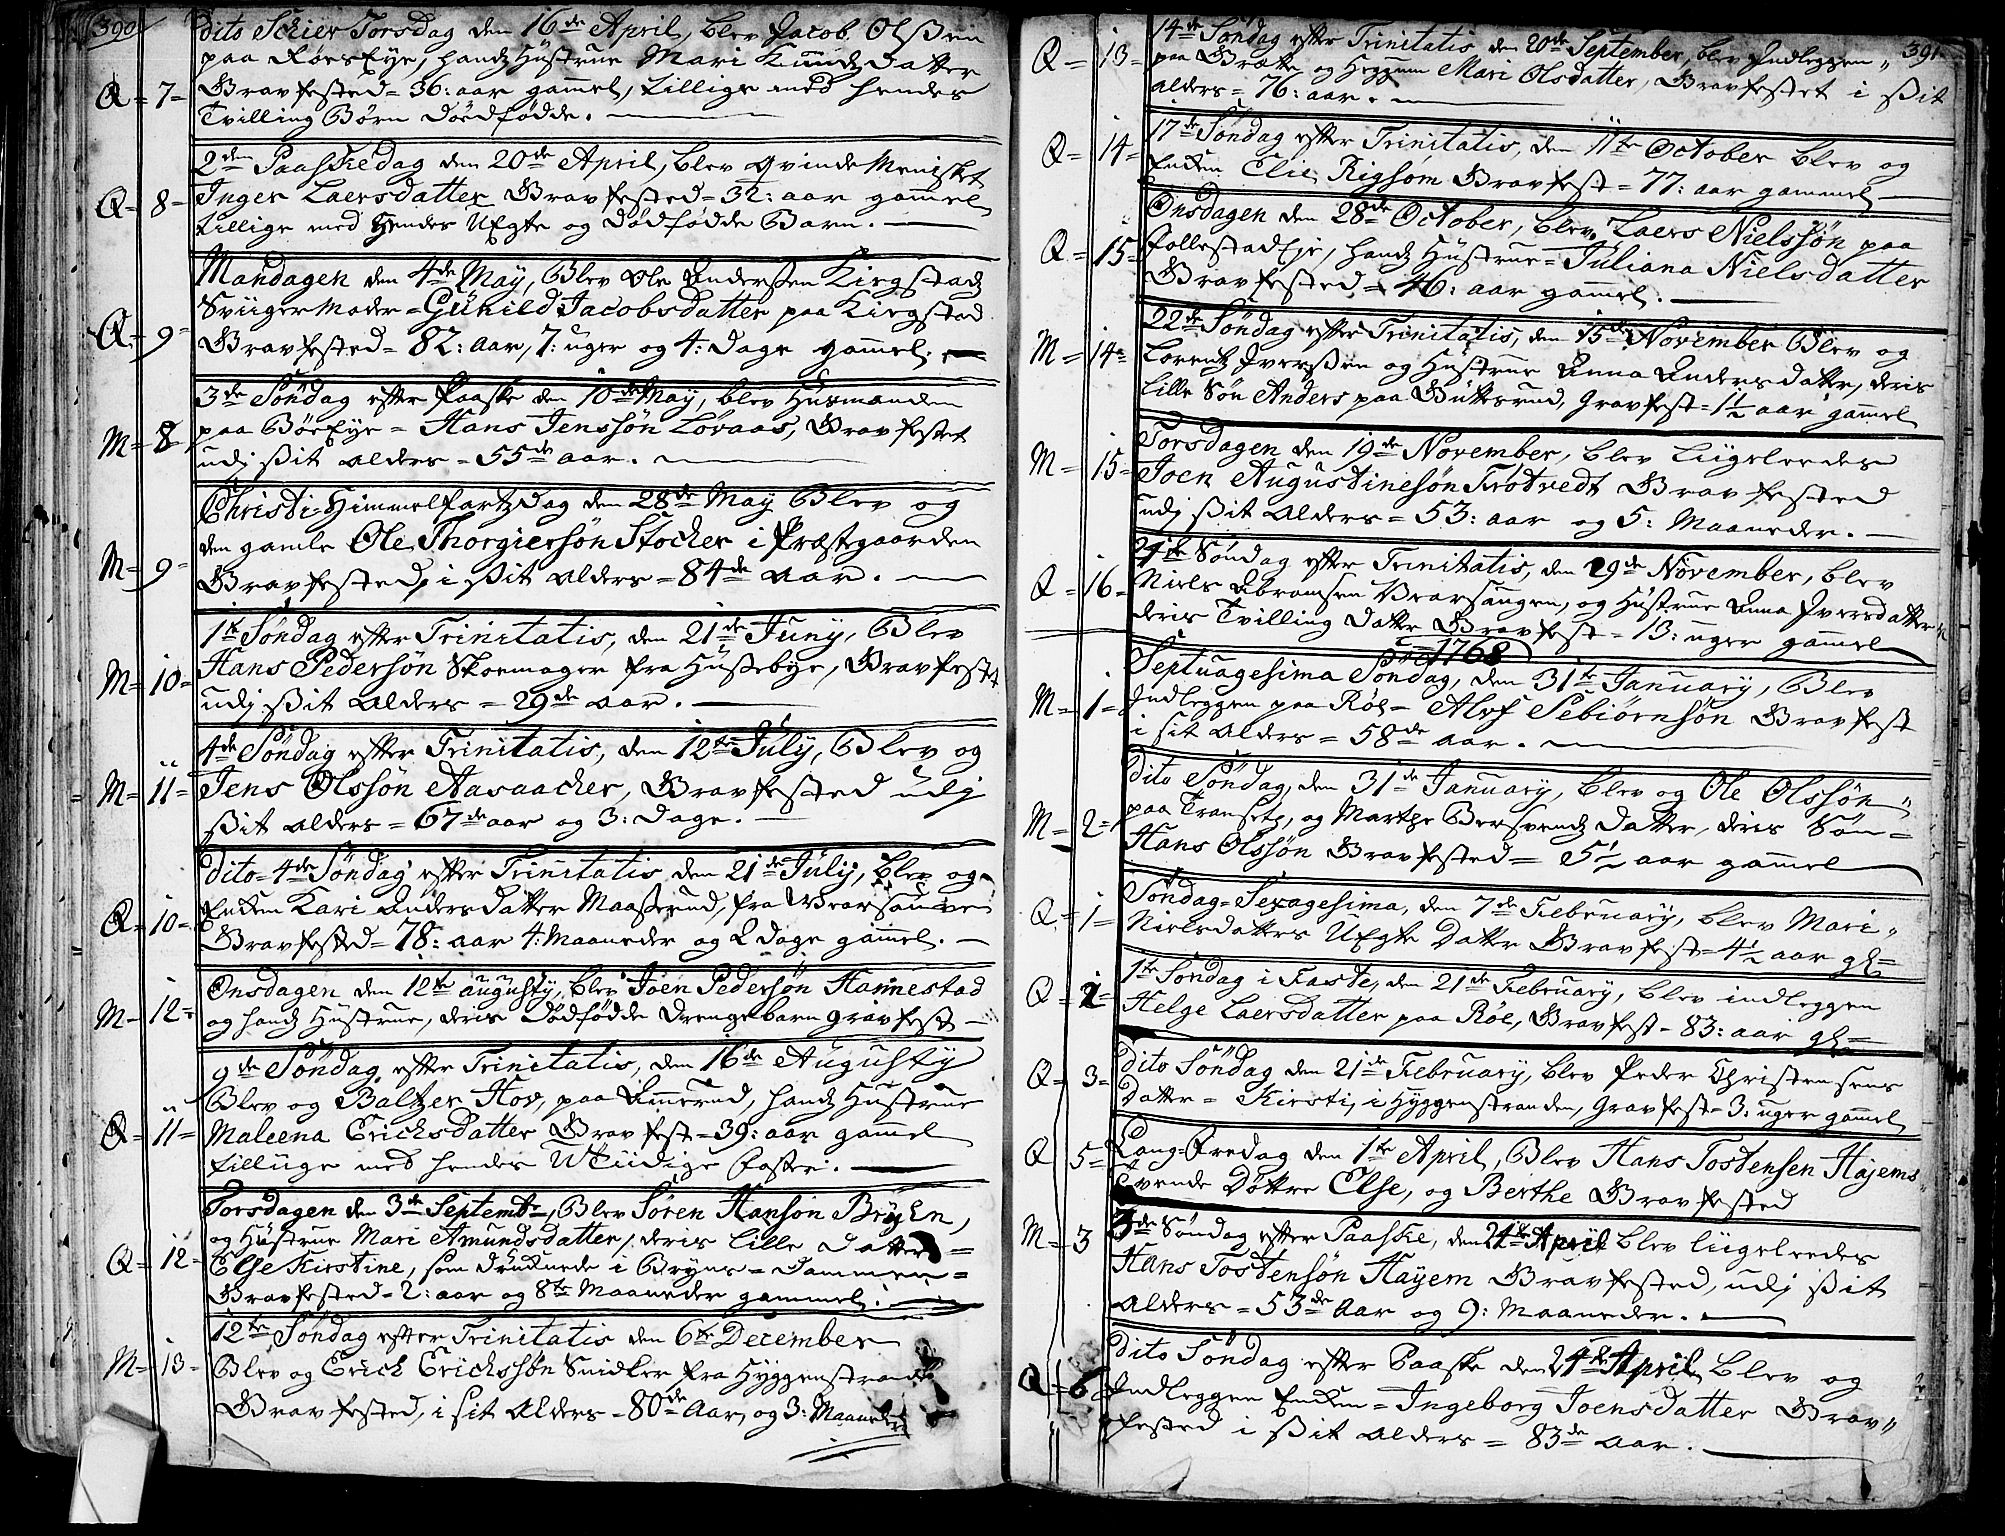 390
dito Schier Torsdag den 16de April, blev Jacob Olssen
paa RøesEye, hands Hüstrue Mari Knudsdatter
Q = 7 = Gravfested = 36: aar gammel, tillige med hendes
Tvilling Børn Dødfødde.
2den Paaskedag den 20de April, blev Qvinde Mennisket
Q = 8 = Inger Laersdatter Gravfested = 32: aar gammel
tillige med Hendes UEgte og Dødfødde Barn.
Mandagen den 4de May, Blev Ole Anderssen Kirgstads
Sviiger Moder = Günild Jacobsdatter paa Kirgstad
Q = 9 = Gravfested = 82: aar, 7: uger og 4: dage gammel.
3de Søndag efter Paaske den 10de May, blev Husmanden
M = 8 = paa BøeEye = Hans Jenssøn Løvaas, Gravfestet
udj ssit alders = 55de aar.
Christi Himmelfartz Dag den 28de May Blev og
den gamle Ole Thorgiersøn Stocker i Præstgaarden
M = 9 = Gravfested, i ssit alders = 84de Aar.
1te Søndag efter Trinitatis, den 21de Juny, Blev
M = 10 = Hans Pedersøn Skoemager fra Hüsebye, Gravfestet
udj ssit alders = 29de aar.
4de Søndag efter Trinitatis, den 12te July, Blev og
M = 11 = Jens Olssøn Aasaacker, Gravfested udj
ssit alders = 67de aar og 3: Dage.
Dito = 4de Søndag efter Trinitatis den 21de July, blev og
Enken Kari Andersdatter Maaserud, fra
Q = 10 = Gravfested = 78: aar 4: Maaneder og 2 dage gammel.
Onsdagen den 12te augusty, blev Joen Pedersøn Hannestad
M = 12 = og hands Hüstrue, deris Dødfødde Drengebarn gravfest
9de Søndag efter Trinitatis, den 16de Augusty
Blev og Baltzer Hov, paa Amerud, hands Hüstrue
Q = 11 = Maleena Erichsdatter Gravfest = 39: aar gammel
tillüge med hendes UTiidige foster.
Torsdagen den 3de Septembr, Blev Søren Hansøn Bryen,
og Hüstrue Mari Amundsdatter, deris lille datter =
Q = 12 = Else Kirstine, som drucknede i Bryns = dammen =
Gravfested = 2: aar og 8te Maaneder gammel.
12te Søndag efter Trinitatis den 6te December
M = 13 = Blev og Erich Erichssøn Snidker fra Hyggenstrand
Gravfested, i sit alders = 80de Aar, og 3: Maaneder
391
14de Søndag efter Trinitatis, den 20de September, blev Indleggen
Q = 13 = paa Bratte og Heggum Mari Olsdatter, Gravfestet i ssit
alders = 76: aar.
17de Søndag efter Trinitatis, den 11te October blev og
Q = 14 = Enken Elie Rigsom Gravfest = 77: aar gammel
Onsdagen den 28de October, blev Laers Nielssøn paa
Q = 15 = FollestadEje, hands Hüstrue = Juliana Nielsdatter
Gravfested = 46: aar gammel.
22de Søndag efter Trinitatis, den 15de November Blev og
M = 14 = Lorents Iverssen og Hüstrue Anna Andersdatter, deris
lille Søn Anders paa Büttesrud, Gravfest = 1½ aar gammel
Torsdagen den 19de November, blev liigeleedes
M = 15 = Joen Augustinesøn Trøtvedt Gravfested
udj ssit alders = 53: aar og 5: Maaneder.
24de Søndag efter Trinitatis, den 29de November, blev
Q = 16 = Niels Abramsen og Hüstrue Anna Iversdatter
deris Tvilling datter Gravfest = 13: uger gammel
1768
Septuagesima Søndag, den 31te January, Blev
M = 1 = Indleggen paa Røe = Alvf Sebiørnsøn Gravfest
i sit alders = 58de aar.
Dito Søndag, den 31te January, blev og Ole Olssøn
M = 2 = paa Transete, og Marthe datter, deris Søn =
Hans Olssøn Gravfested = 5½ aar gammel
Søndag = Sexagesima, den 7de February, blev Mari
Q = 1 = Nielsdatters UEgte Datter Gravfest = 4½ aar gl =
1te Søndag i Faste, den 21de February, blev indleggen
Q = 2 = Helge Laersdatter paa Røe, Gravfest = 83: aar gl =
Dito Søndag den 21de February, blev Peder Christensens
Q = 3 = Datter = Kirsti, i Hyggenstranden, Gravfest = 3: uger gammel
Lang = Fredag den 1te April, Blev Hans Tostensen Hajems
Q 5 = Tvende døttre Else, og Berthe Gravfested
3de Søndag efter Paaske, den 24de April blev liigeleedes
M = 3 Hans Tostensøn Hayem Gravfested, udj ssit
alders = 53de Aar og 9: Maaneder.
Dito Søndag efter Paaske den 24de April, blev og
Q = 6 Indleggen Enken = Ingeborg Joensdatter Grav=
fested i ssit alders = 83de aar.